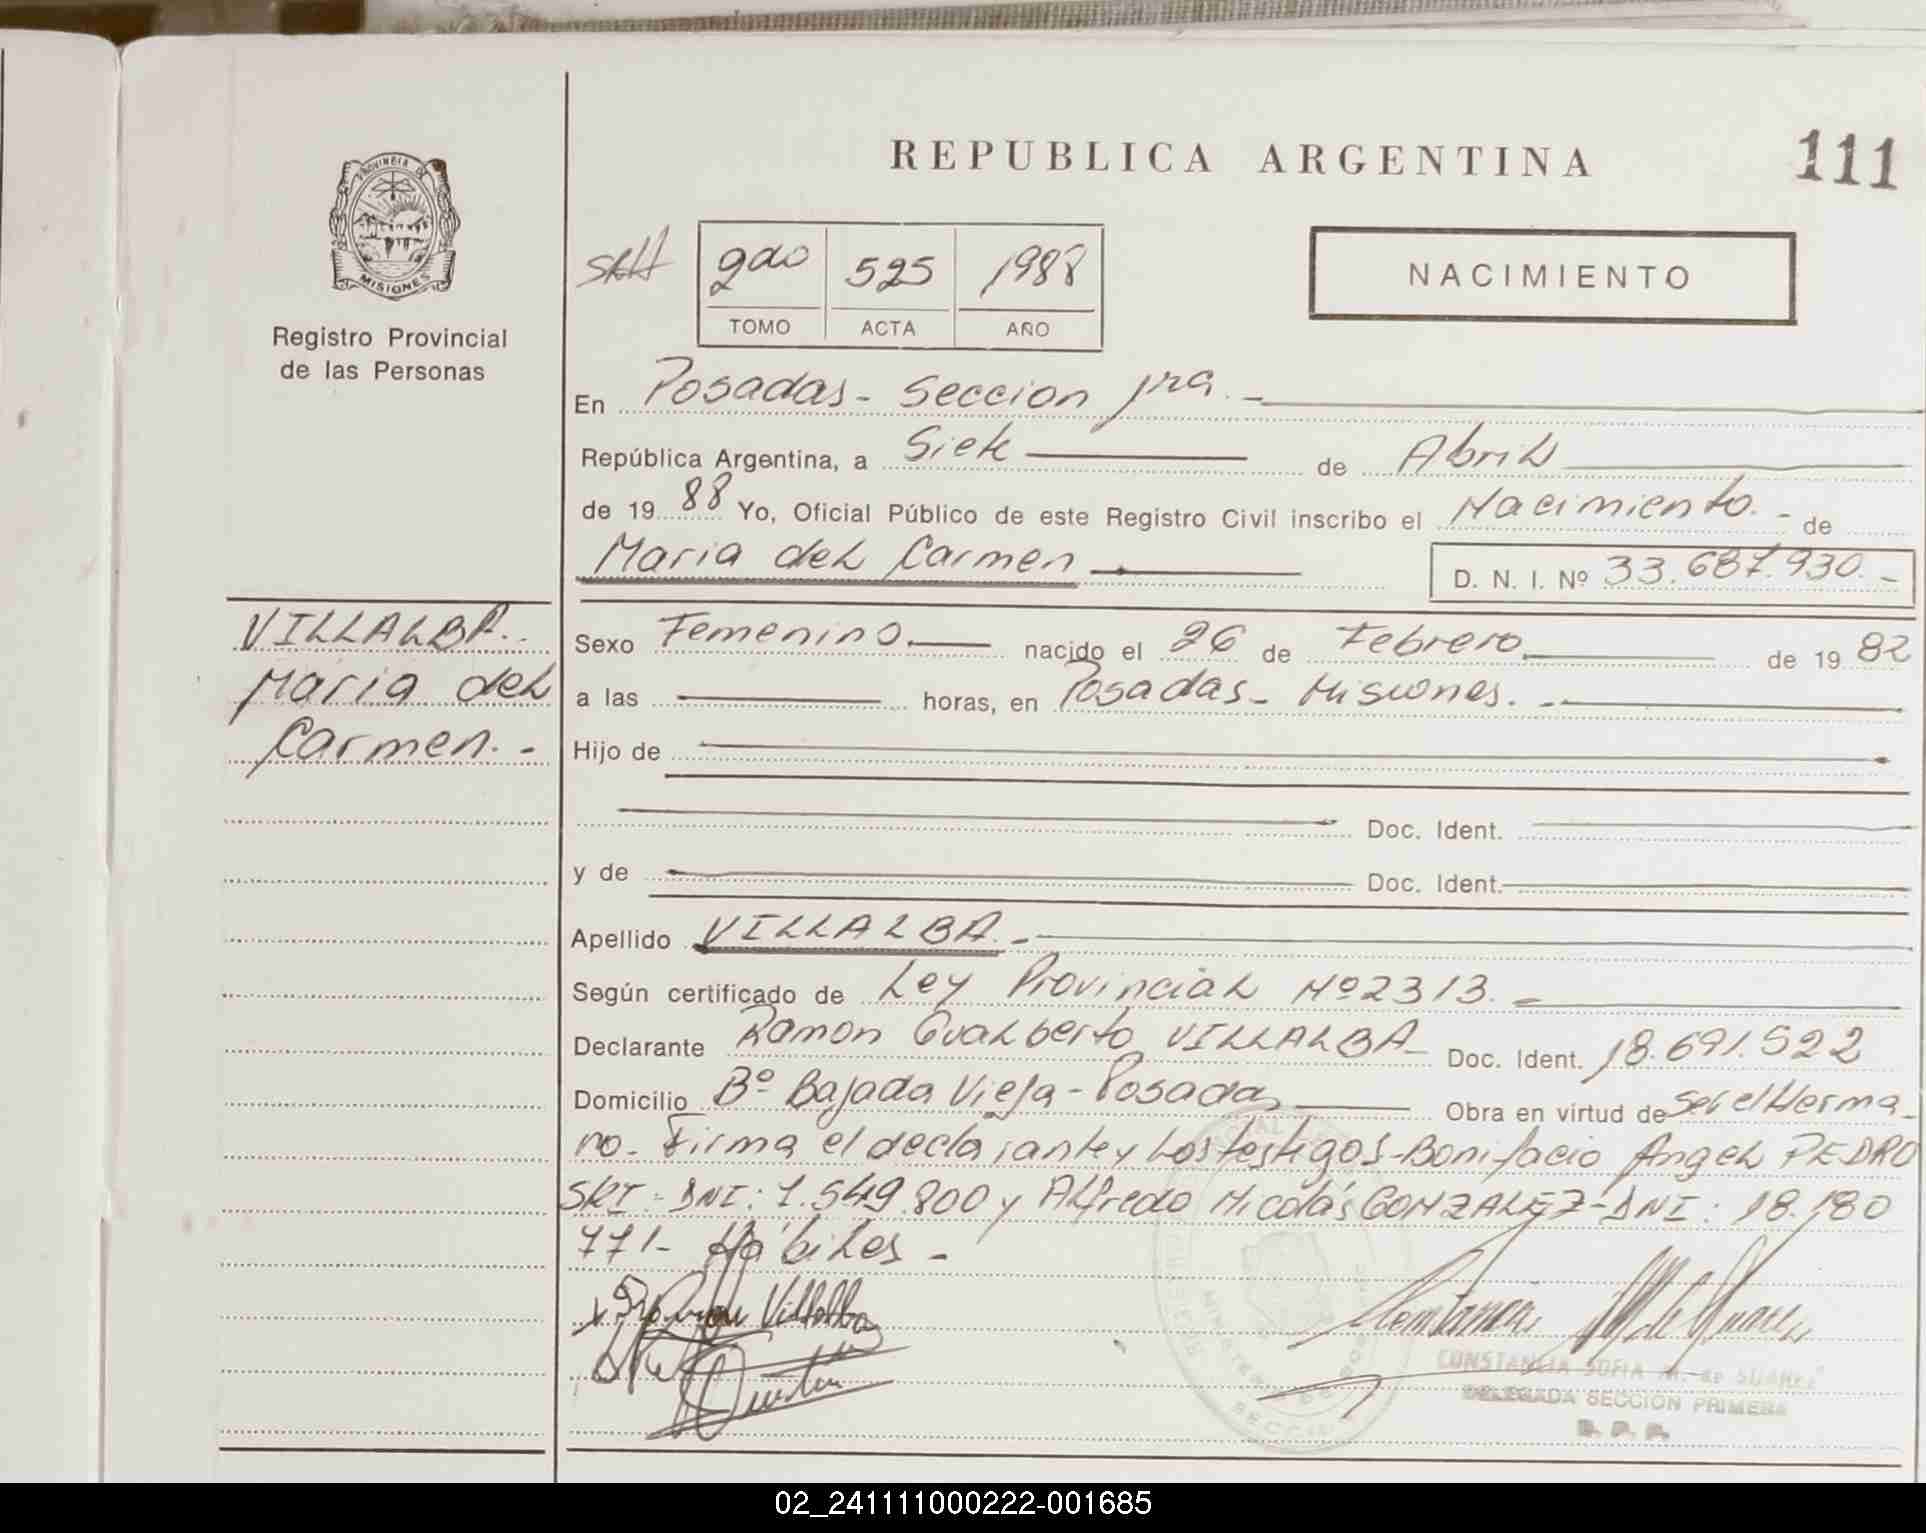 REPUBLICA ARGENTINA
111
PROVINCIA DE
MISIONES
Registro Provincial
de las Personas
2do 525 1988
TOMO ACTA AÑO
NACIMIENTO
En Posadas - Seccion 1ra. -
República Argentina, a Siete de Abril
de 19 88 Yo, Oficial Público de este Registro Civil inscribo el Nacimiento. - de
Maria del Carmen
D. N. I. Nº 33.687.930. -
VILLALBA. -
Maria del
Carmen. -
Sexo Femenino. nacido el 26 de Febrero de 19 82
a las horas, en Posadas - Misiones. -
Hijo de
Doc. Ident.
y de Doc. Ident.
Apellido VILLALBA. -
Según certificado de Ley Provincial Nº 2313. -
Declarante Ramon Gualberto VILLALBA - Doc. Ident. 18.691.522
Domicilio Bº Bajada Vieja - Posadas Obra en virtud de Ser el Herma-
no - Firma el declarante y los testigos - Bonifacio Angel PEDRO
SKI - DNI: 7.549.800 y Alfredo Nicolás GONZALEZ - DNI: 18.180
771 - Hábiles -
Villalba
CONSTANCIA SOFIA M. de SUAREZ
DELEGADA SECCION PRIMERA
R. P. P.
02_241111000222-001685